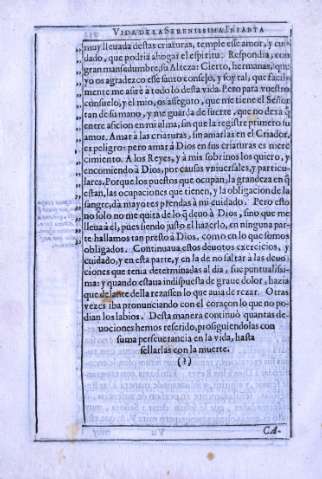 VIDA DE LA SERENISSIMA INFANTA
muy lleuada destas criaturas, temple esse amor, y cui-
dado, que podria ahogar el espiritu. Respondia, con
gran mansedumbre, su Alteza: Cierto, hermanas, que
yo os agradezco esse santo consejo, y soy tal, que facil-
mente me asiré à todo lo desta vida. Pero para vuestro
consuelo, y el mio, os asseguro, que me tiene el Señor
tan de su mano, y me guarda de suerte, que no dexa q̃
entre aficion en mi alma, sin que la registre primero su
amor. Amar à las criaturas, sin amarlas en el Criador,
es peligro: pero amar à Dios en sus criaturas es mere-
cimiento. A los Reyes, y à mis sobrinos los quiero, y
encomiendo à Dios, por causas vniuersales, y particu-
lares. Porque los puestos que ocupan, la grandeza en q̃
estan, las ocupaciones que tienen, y la obligacion de la
sangre, dà mayores prendas à mi cuidado. Pero esto
no solo no me quita de lo q̃ deuo à Dios, sino que me
lleua à èl, pues siendo justo el hazerlo, en ninguna par-
te hallamos tan presto à Dios, como en lo que somos
obligados. Continuaua estos deuotos exercicios, y
cuidado, y en esta parte, y en la de no faltar à las deuo-
ciones que tenia determinadas al dia, fue puntualissi-
ma: y quando estaua indispuesta de graue dolor, hazia
que delante della rezassen lo que auia de rezar. Otras
vezes iba pronunciando con el coraçon lo que no po-
dian los labios. Desta manera continuò quantas de-
uociones hemos referido, prosiguiendolas con
suma perseuerancia en la vida, hasta
sellarlas con la muerte.
(?)
CA-